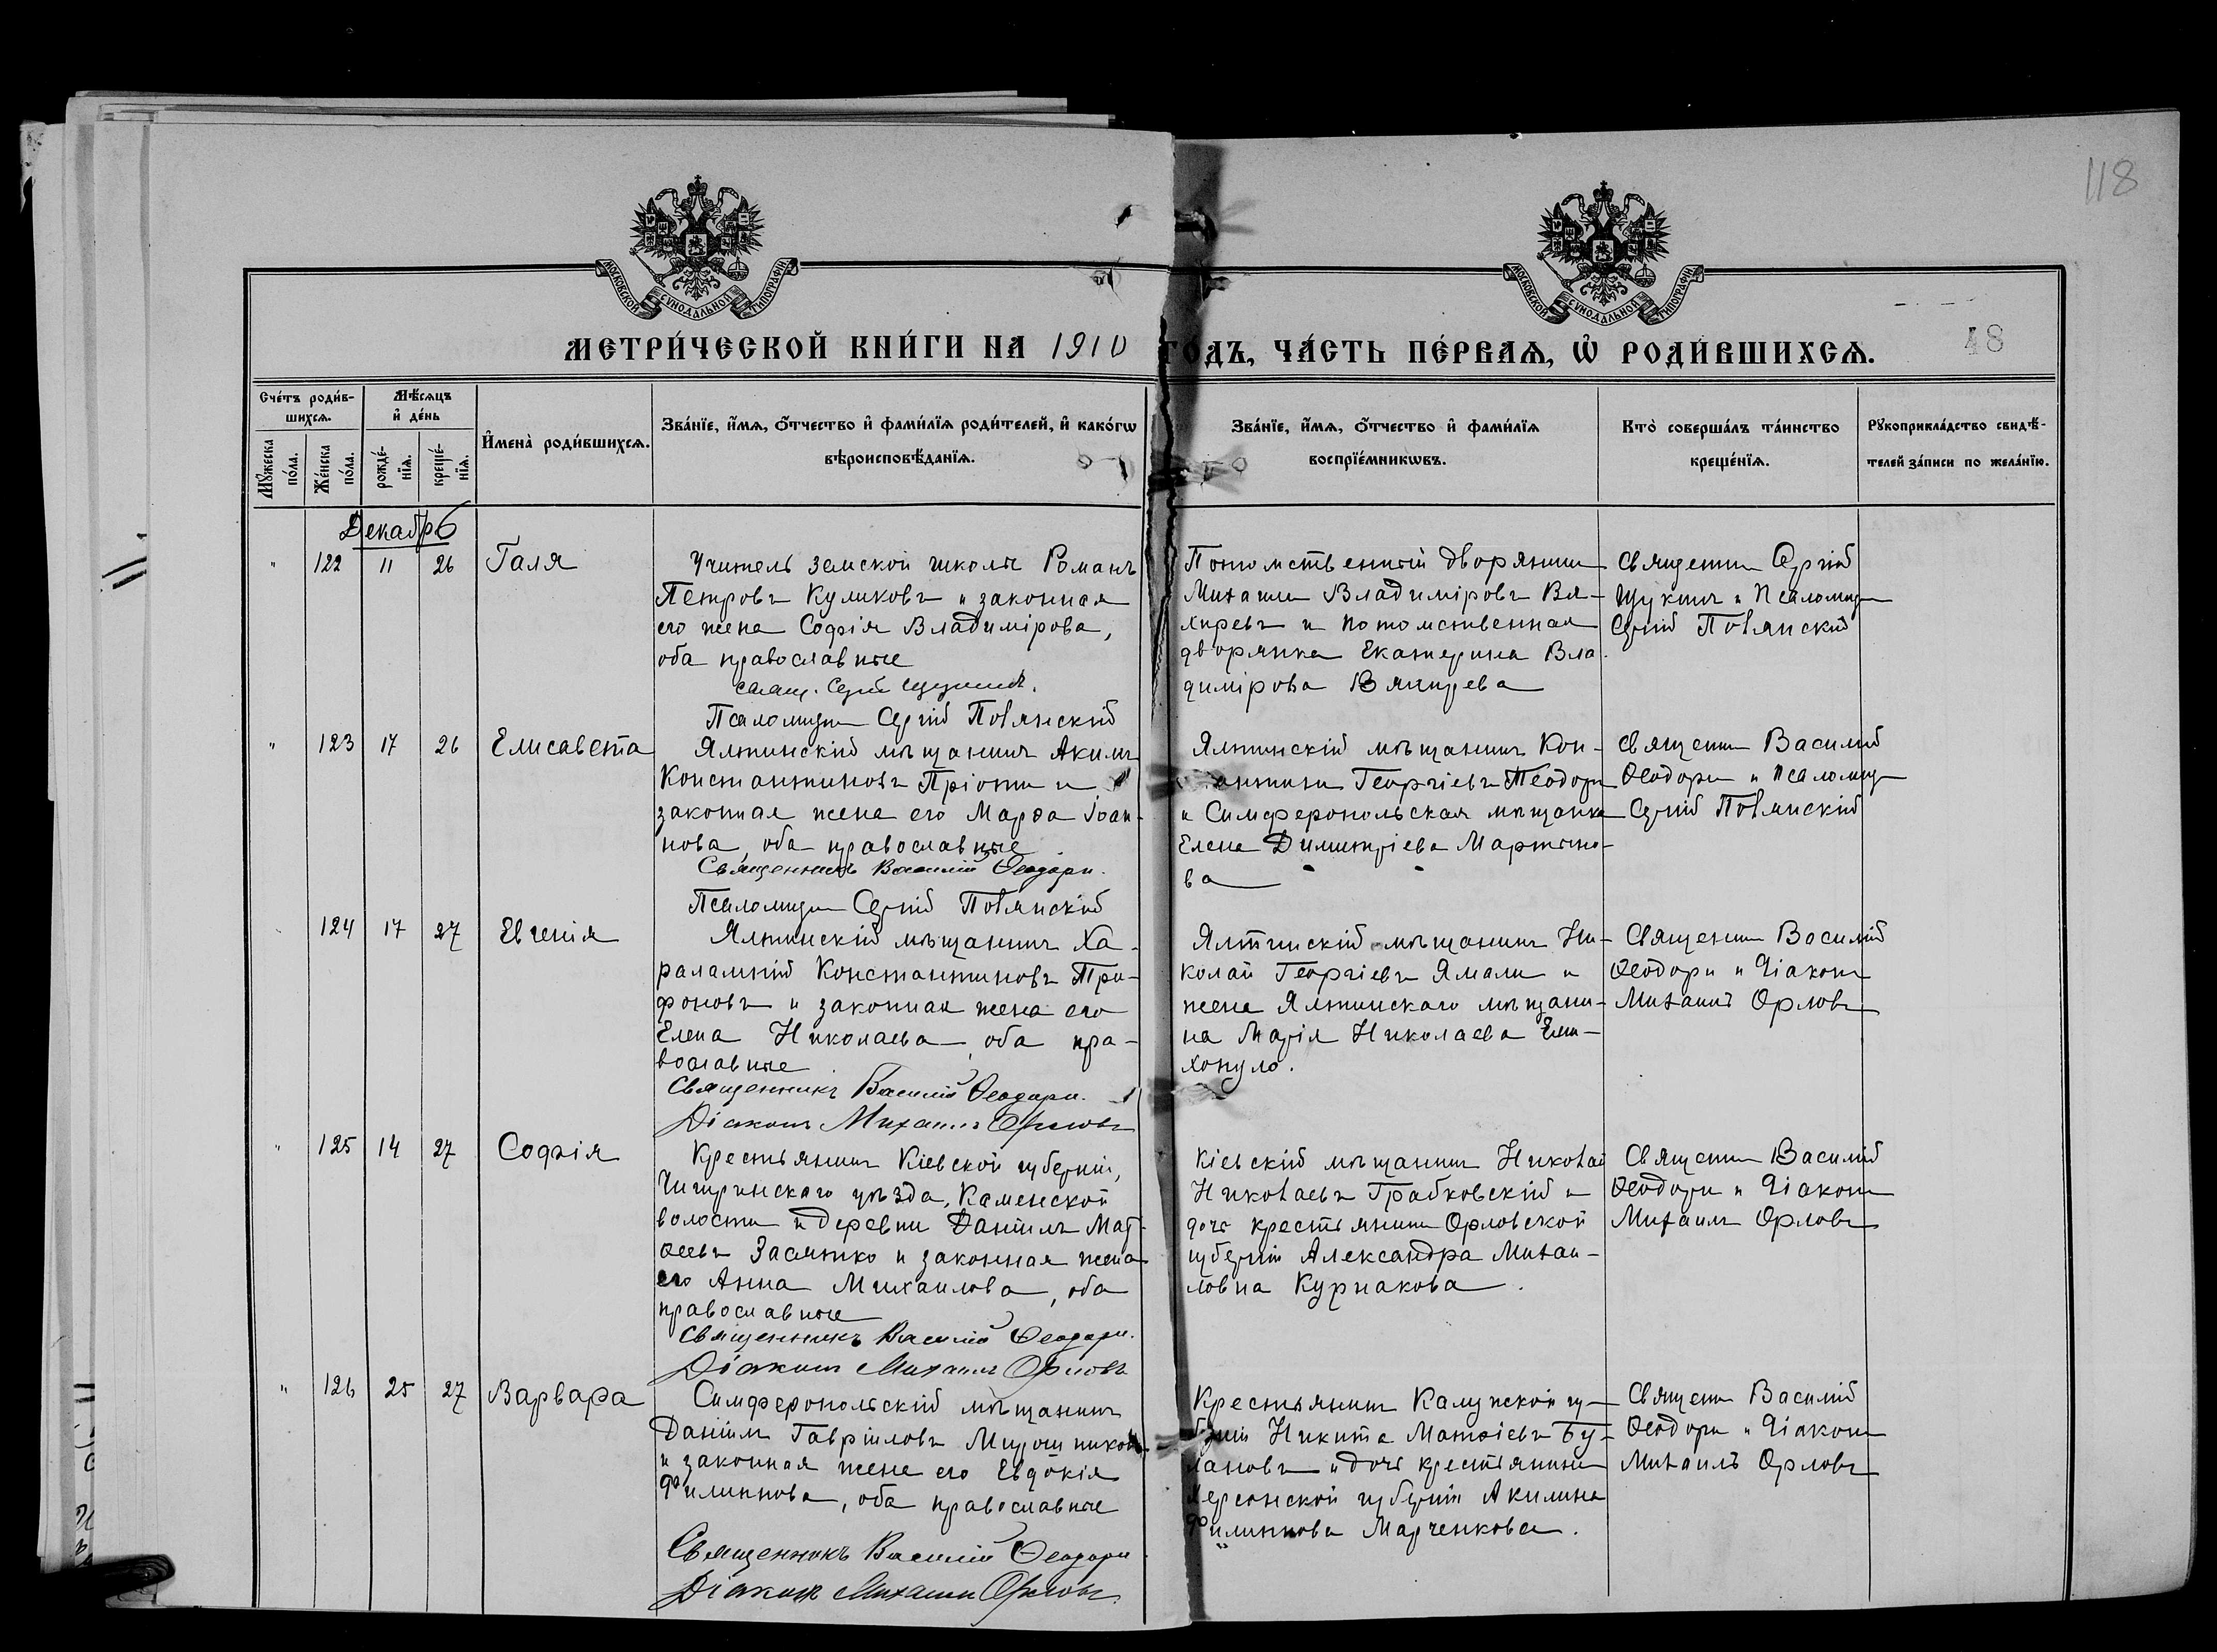 118
МОСКОВСКОЙ СѴНОДАЛЬНОЙ ТИПОГРАФІИ.
МОСКОВСКОЙ СѴНОДАЛЬНОЙ ТИПОГРАФІИ.
МЕТРИ́ЧЕСКОЙ КНИ́ГИ НА 1910 ГОДЪ, ЧА́СТЬ ПЕ́РВАѦ, Ѡ҆ РОДИ́ВШИХСѦ.
48
Сче́тъ роди́в-
шихсѧ.
Мꙋ́жеска
по́ла.
Же́нска
по́ла.
Мѣ́сѧцъ
и҆ де́нь
рожде́-
нїѧ.
креще́-
нїѧ.
И҆мена̀ роди́вшихсѧ.
Зва́нїе, и҆́мѧ, ѻ҆́тчество и҆ фами́лїѧ роди́телей, и҆ како́гѡ
вѣроисповѣ́данїѧ.
Зва́нїе, и҆́мѧ, ѻ҆́тчество и҆ фами́лїѧ
воспрїе́мникѡвъ.
Кто̀ соверша́лъ та́инство
креще́нїѧ.
Рꙋкоприкла́дство свидѣ́-
телей за́писи по жела́нїю.
Декабрь
" 122 11 26 Галя
Учитель земской школы Романъ
Петровъ Куликовъ и законная
его жена Софія Владимірова,
оба православные
свящ. Сергій Щукинъ.
Псаломщик Сергій Повянскій
Потомственный дворянинъ
Михаилъ Владиміровъ Вя-
хиревъ и потомственная
дворянка Екатерина Вла-
димірова Вяхирева
Священник Сергій
Щукинъ и Псаломщ
Сергій Повянскій
" 123 17 26 Елисавета
Ялтинскій мѣщанинъ Акимъ
Константиновъ Пріоти и
законная жена его Марѳа Іоан-
нова, оба православные
Священникъ Василій Ѳеодори.
Псаломщик Сергій Повянскій
Ялтинскій мѣщанинъ Кон-
антинъ Георгіевъ Теодори
и Симферопольская мѣщанка
Елена Димитріева Мартыно-
ва
Священник Василій
Ѳеодори и псаломщ
Сергій Повянскій
124 17 27 Евгенія
Ялтинскій мѣщанинъ Ха-
ралампій Константиновъ Три-
фоновъ и законная жена его
Елена Николаева, оба пра-
вославные
Священникъ Василій Ѳеодори.
Діаконъ Михаилъ Орловъ
Ялтинскій мѣщанинъ Ни-
колай Георгіевъ Ямали и
жена Ялтинскаго мѣщани-
на Марія Николаева Ели-
хопуло.
Священник Василій
Ѳеодори и Діаконъ
Михаилъ Орловъ
" 125 14 27 Софія
Крестьянинъ Кіевской губерніи,
Чигиринскаго уѣзда, Каменской
волости и деревни Даніилъ Мат-
ѳеевъ Засятко и законная жена
его Анна Михаилова, оба
православные
Священникъ Василій Ѳеодори.
Діаконъ Михаилъ Орловъ
Кіевскій мѣщанинъ Николай
Николаевъ Грабковскій и
дочь крестьянина Орловской
губерніи Александра Михаи-
ловна Курнакова.
Священник Василій
Ѳеодори и Діаконъ
Михаилъ Орловъ
" 126 25 27 Варвара
Симферопольскій мѣщанинъ
Даніилъ Гавріиловъ Мирошников
и законная жена его Евдокія
Филиппова, оба православные
Священникъ Василій Ѳеодори
Діаконъ Михаилъ Орловъ
Крестьянинъ Калужской гу-
берніи Никита Матѳіевъ Бу-
лановъ и дочь крестьянина
Херсонской губерніи Акилина
Филиппова Марченкова.
Священник Василій
Ѳеодори и Діаконъ
Михаилъ Орловъ